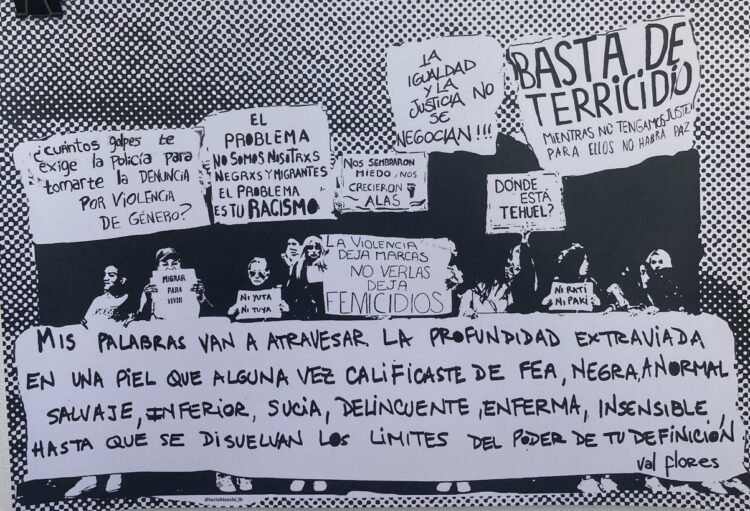 ¿CUÁNTOS golpes te
exige la POLICÍA PARA
tomarte la DENUNCIA
POR VIOLENCIA
DE GÉNERO?
EL
PROBLEMA
NO SOMOS NOSOTRXS
NEGRXS Y MIGRANTES
EL PROBLEMA
ES TU RACISMO
NOS SEMBRARON
MIEDO, NOS
CRECIERON
ALAS
LA
IGUALDAD
Y LA
JUSTICIA NO
SE
NEGOCIAN!!!
BASTA DE
TERRICIDIO
MIENTRAS NO TENGAMOS JUSTICIA
PARA ELLOS NO HABRÁ PAZ
DÓNDE
ESTÁ
TEHUEL?
MIGRAR
PARA
VIVIR
NI YUTA
NI TUYA
LA VIOLENCIA
DEJA MARCAS
NO VERLAS
DEJA
FEMICIDIOS
NI RATI
NI PAKI
MIS PALABRAS VAN A ATRAVESAR LA PROFUNDIDAD EXTRAVIADA
EN UNA PIEL QUE ALGUNA VEZ CALIFICASTE DE FEA, NEGRA, ANORMAL
SALVAJE, INFERIOR, SUCIA, DELINCUENTE, ENFERMA, INSENSIBLE
HASTA QUE SE DISUELVAN LOS LÍMITES DEL PODER DE TU DEFINICIÓN
val flores
@luciabianchi_lb